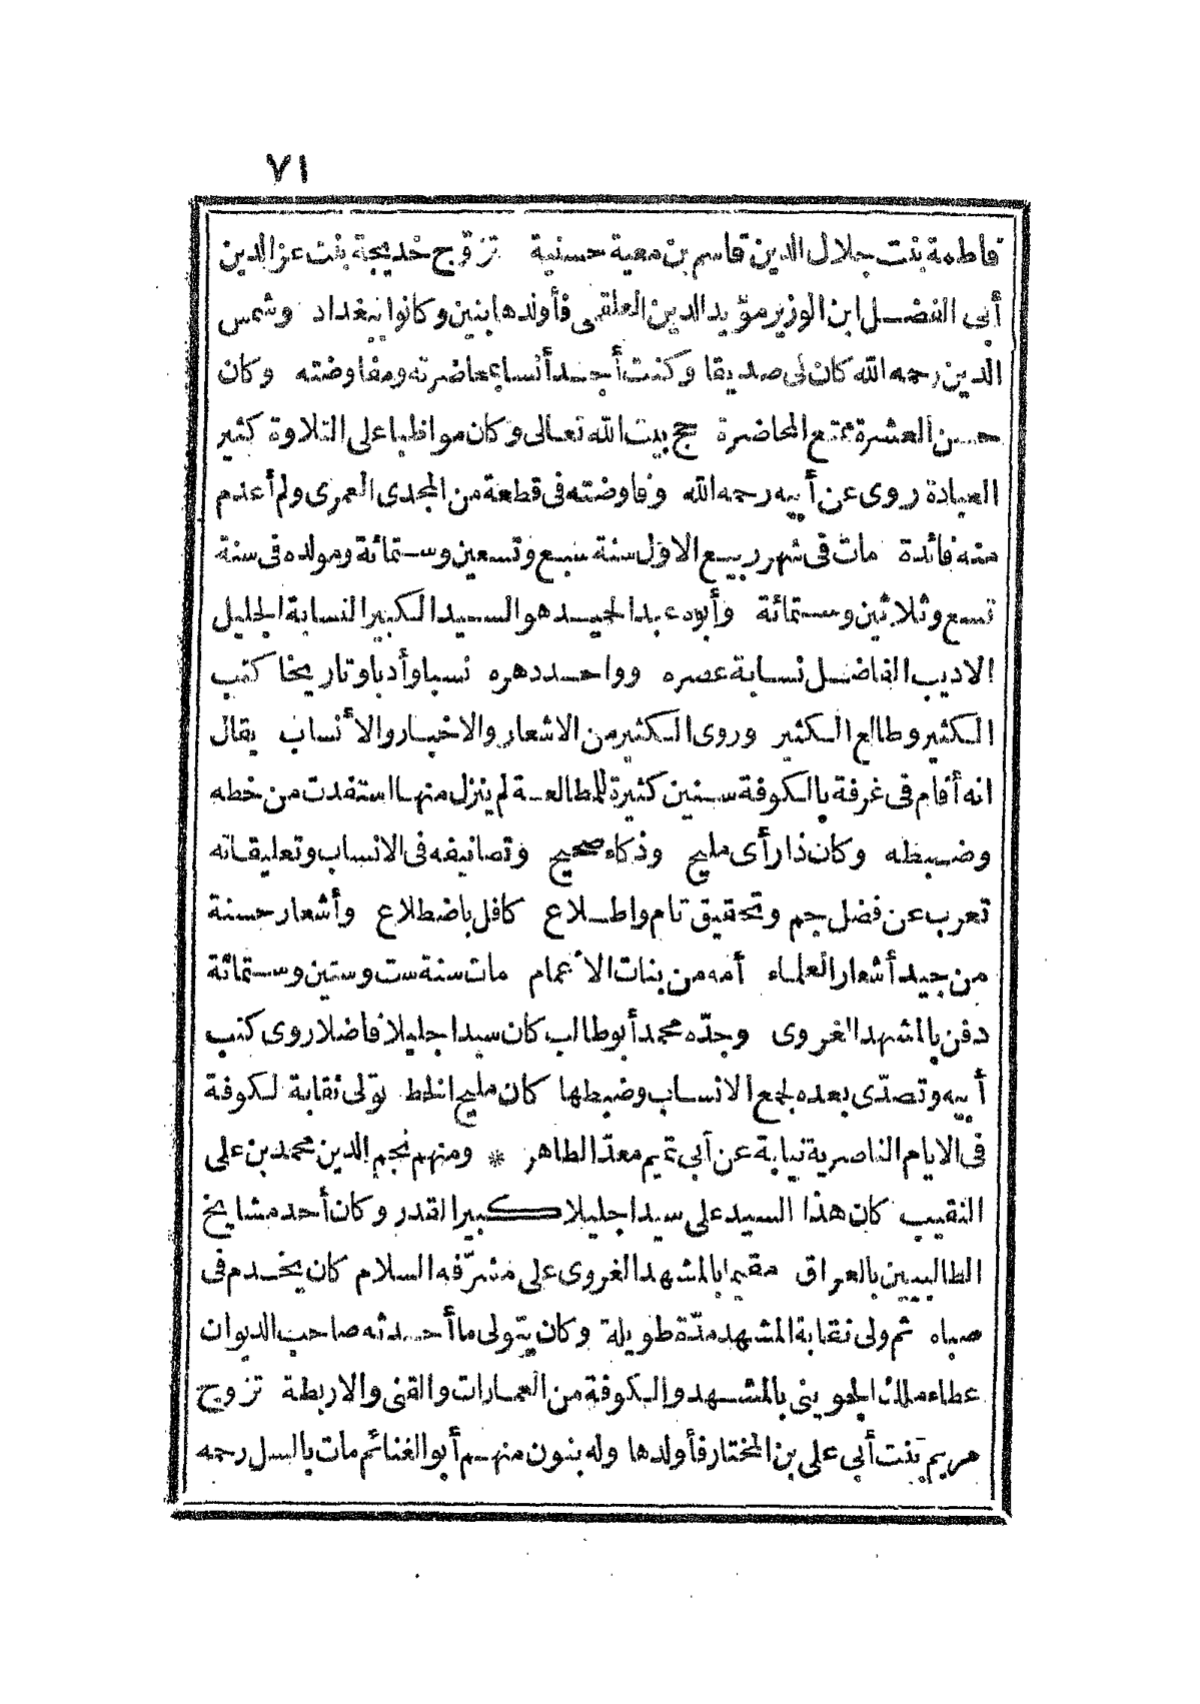 ٧١
فاطمة بنت جلال الدين قاسم بن معية حسنية تزوّج خديجة بنت عز الدين
أبى الفضل ابن الوزير مؤيد الدين العلقمى فأولدها بنين وكانوا ببغداد وشمس
الدين رحمه الله كان لى صديقا وكنت أجد أنسا بمحاضرته ومفاوضته وكان
حسن العشرة ممتع المحاضرة حج بيت الله تعالى وكان مواظبا على التلاوة كثير
العبادة روى عن أبيه رحمه الله وفاوضته فى قطعة من المجدى العمرى ولم أعدم
منه فائدة مات فى شهر ربيع الاول سنة سبع وتسعين وستمائة ومولده فى سنة
تسع وثلاثين وستمائة وأبوه عبد الحميد هو السيد الكبير النسابة الجليل
الاديب الفاضل نسابة عصره وواحد دهره نسبا وأدبا وتاريخا كتب
الكثير وطالع الكثير وروى الكثير من الاشعار والاخبار والأنساب يقال
انه أقام فى غرفة بالكوفة سنين كثيرة للمطالعة لم ينزل منها استفدت من خطه
وضبطه وكان ذا رأى مليح وذكاء صحيح وتصانيفه فى الانساب وتعليقاته
تعرب عن فضل جم وتحقيق تام واطلاع كافل باضطلاع وأشعار حسنة
من جيد أشعار العلماء أمه من بنات الأعمام مات سنة ست وستين وستمائة
دفن بالمشهد الغروى وجدّه محمد أبو طالب كان سيدا جليلا فاضلا روى كتب
أبيه وتصدّى بعده لجمع الانساب وضبطها كان مليح الخط تولى نقابة لكوفة
فى الايام الناصرية نيابة عن أبى تميم معدّ الطاهر * ومنهم نجم الدين محمد بن على
النقيب كان هذا السيد على سيدا جليلا كبير القدر وكان أحد مشايخ
الطالبيين بالعراق مقيما بالمشهد الغروى على مشرّفه السلام كان يخدم فى
صباه ثم ولى نقابة المشهد مدّة طويلة وكان يتولى ما أحدثه صاحب الديوان
عطاء ملك الجوينى بالمشهد والكوفة من العمارات والقنى والاربطة تزوج
مريم بنت أبى على بن المختار فأولدها وله بنون منهم أبو الغنائم مات بالسل رحمه